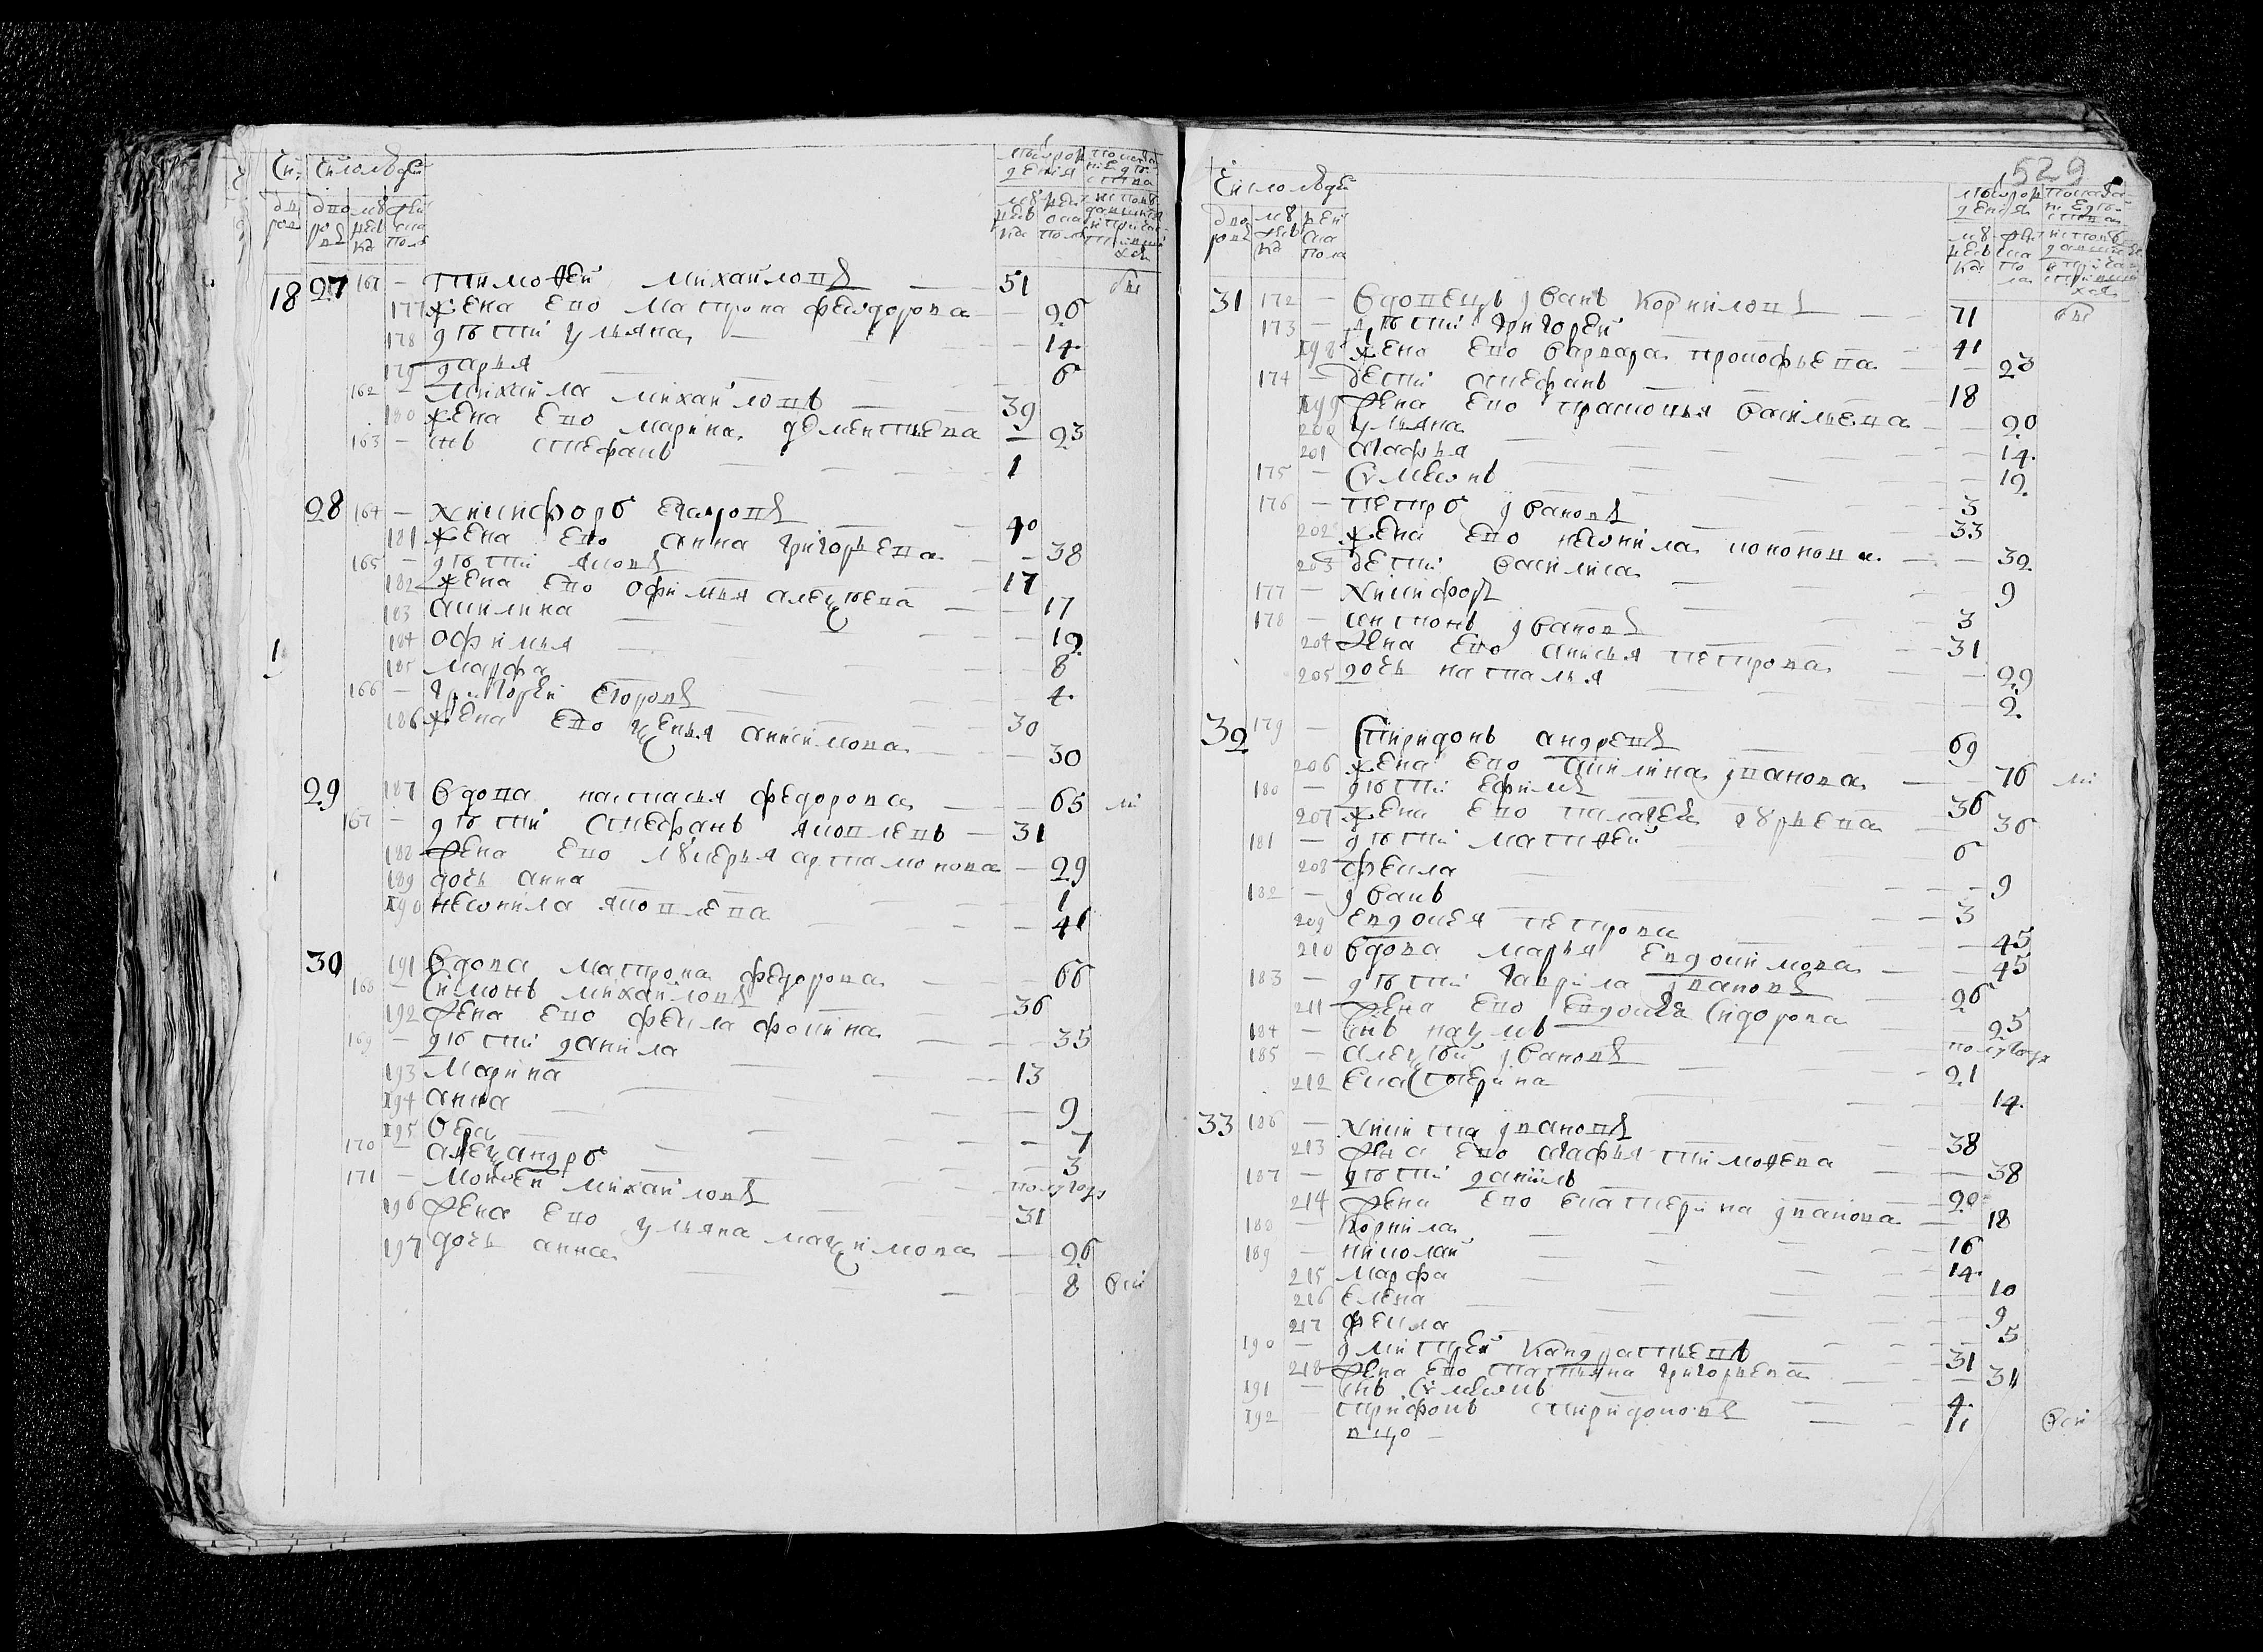 Число людей
18 27 161 тимоѳей михайловъ 51 бы
177 жена ево матрона феѡдорова 26
178 дѣти ульяна 14
179 дарья 6
162 михайла михайловъ 39
180 жена ево марина дементьева 23
163 снъ стефанъ 1
28 164 никифоръ егоровъ 40
181 жена ево анна григорьева 38
165 дѣти яковъ 17
182 жена ево офимья алеѯѣева 17
183 акилина 12
184 офимья 8
185 марфа 4
166 григорей егоровъ 30
186 жена ево ѯенья анисимова 30
29 187 вдова настасья федорова 65
167 дѣти стефанъ яковлевъ 31
188 жена ево лукерья артамонова 29
189 дочь анна 1
190 неѡнила яковлева 46
30 191 вдова матрона федорова 66
168 симонъ михайловъ 36
192 жена ево фекла фокина 35
169 дѣти данила 13
193 марина 9
194 анна 7
195 ѳекла 3
170 алеѯандръ полугоду
171 моисей михайловъ 31
196 жена ево ульяна маѯимова 26
197 дочь анна 8
529
Число людей
31 172 вдовецъ иванъ корниловъ 71 бы
173 дѣти григорей 41
198 жена ево варвара прокофьева 23
174 дети стефанъ 18
199 жена ево прасковья васильева 20
200 ульяна 14
201 агафья 12
175 сѵмеѡнъ 3
176 петръ ивановъ 33
202 жена ево неѡнила кононова 32
203 дети василиса 9
177 никифоръ 3
178 антонъ ивановъ 31
204 жена ево анисья петрова 29
205 дочь наталья 2
32 179 спиридонъ андреевъ 69
206 жена ево акилина иванова 76
180 дѣти ефимъ 36
207 жена ево палагея гурьева 36
181 дѣти матвей 6
208 фекла 9
182 иванъ 3
209 евдокея петрова 45
210 вдова марья евдокимова 45
183 дѣти гаврила ивановъ 26
211 жена ево евдокея сидорова 25
184 снъ наумъ полугоду
185 алеѯѣй ивановъ 21
212 екатерина 14
33 186 никита ивановъ 38
213 жена ево агафья тимоѳева 38
187 дѣти данилъ 20
214 жена ево екатерина иванова 18
188 корнила 16
189 николай 14
215 марфа 10
216 елена 9
217 фекла 5
190 дмитрей кандратьевъ 31
218 жена ево татьяна григорьева 31
191 снъ сѵмеѡнъ 4
192 трифонъ спиридоновъ 11